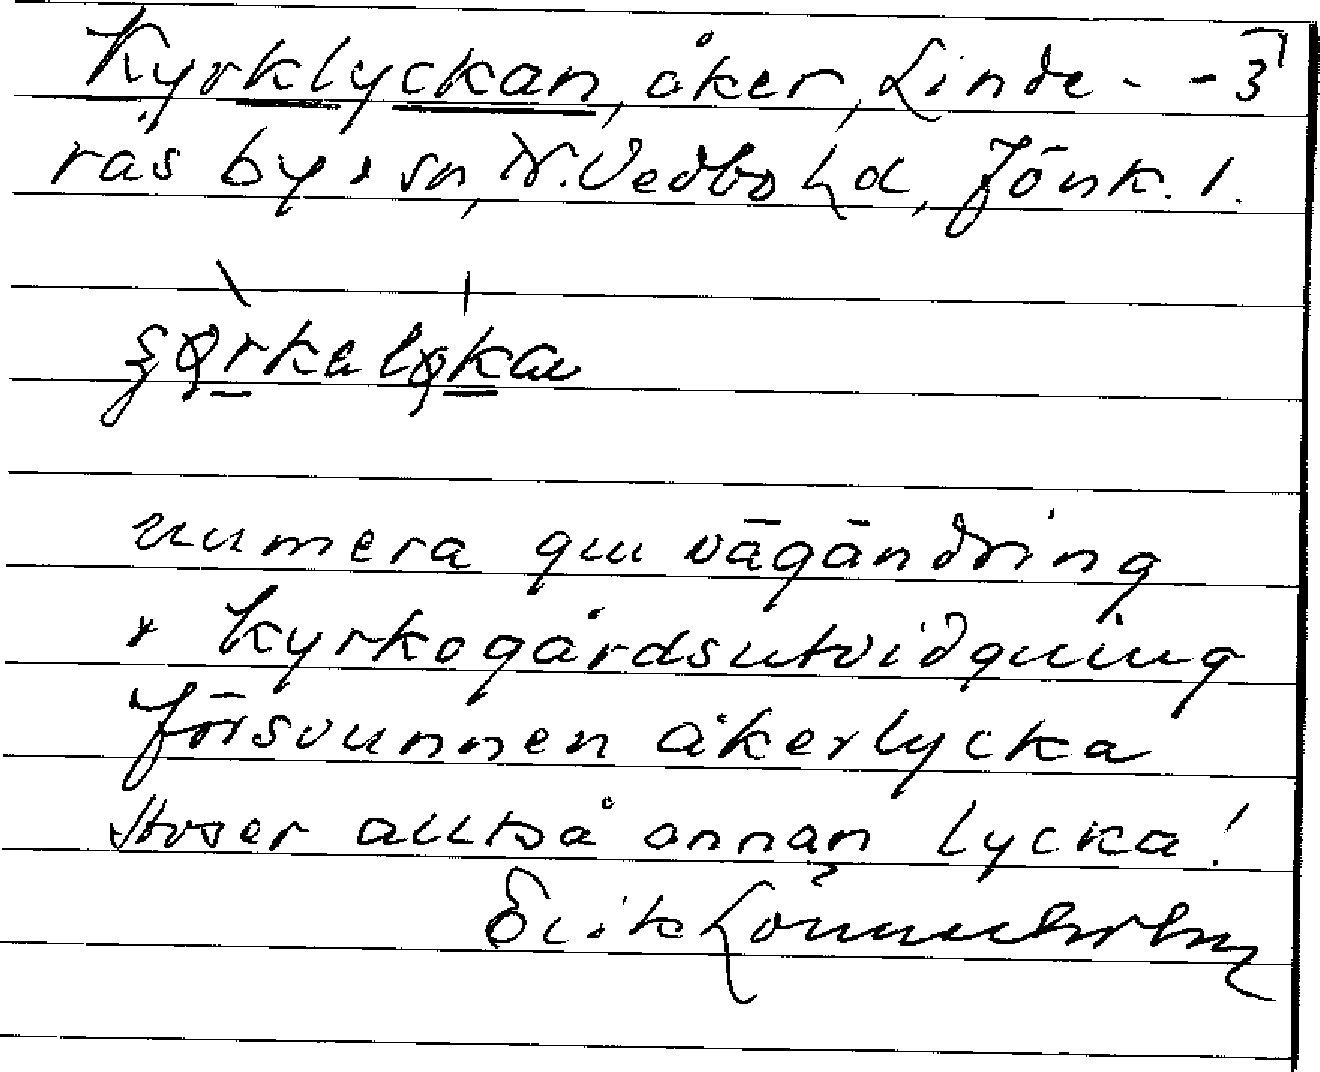 Kyrklyckan, åker, Linde- -3
rås by o sn, N. Vedbo hd, Jönk. l.
numera gm vägändring
o Kyrkogårdsutvidgning
försvunnen åkerlycka
avser alltså annan lycka!
Erik Lönnerholm